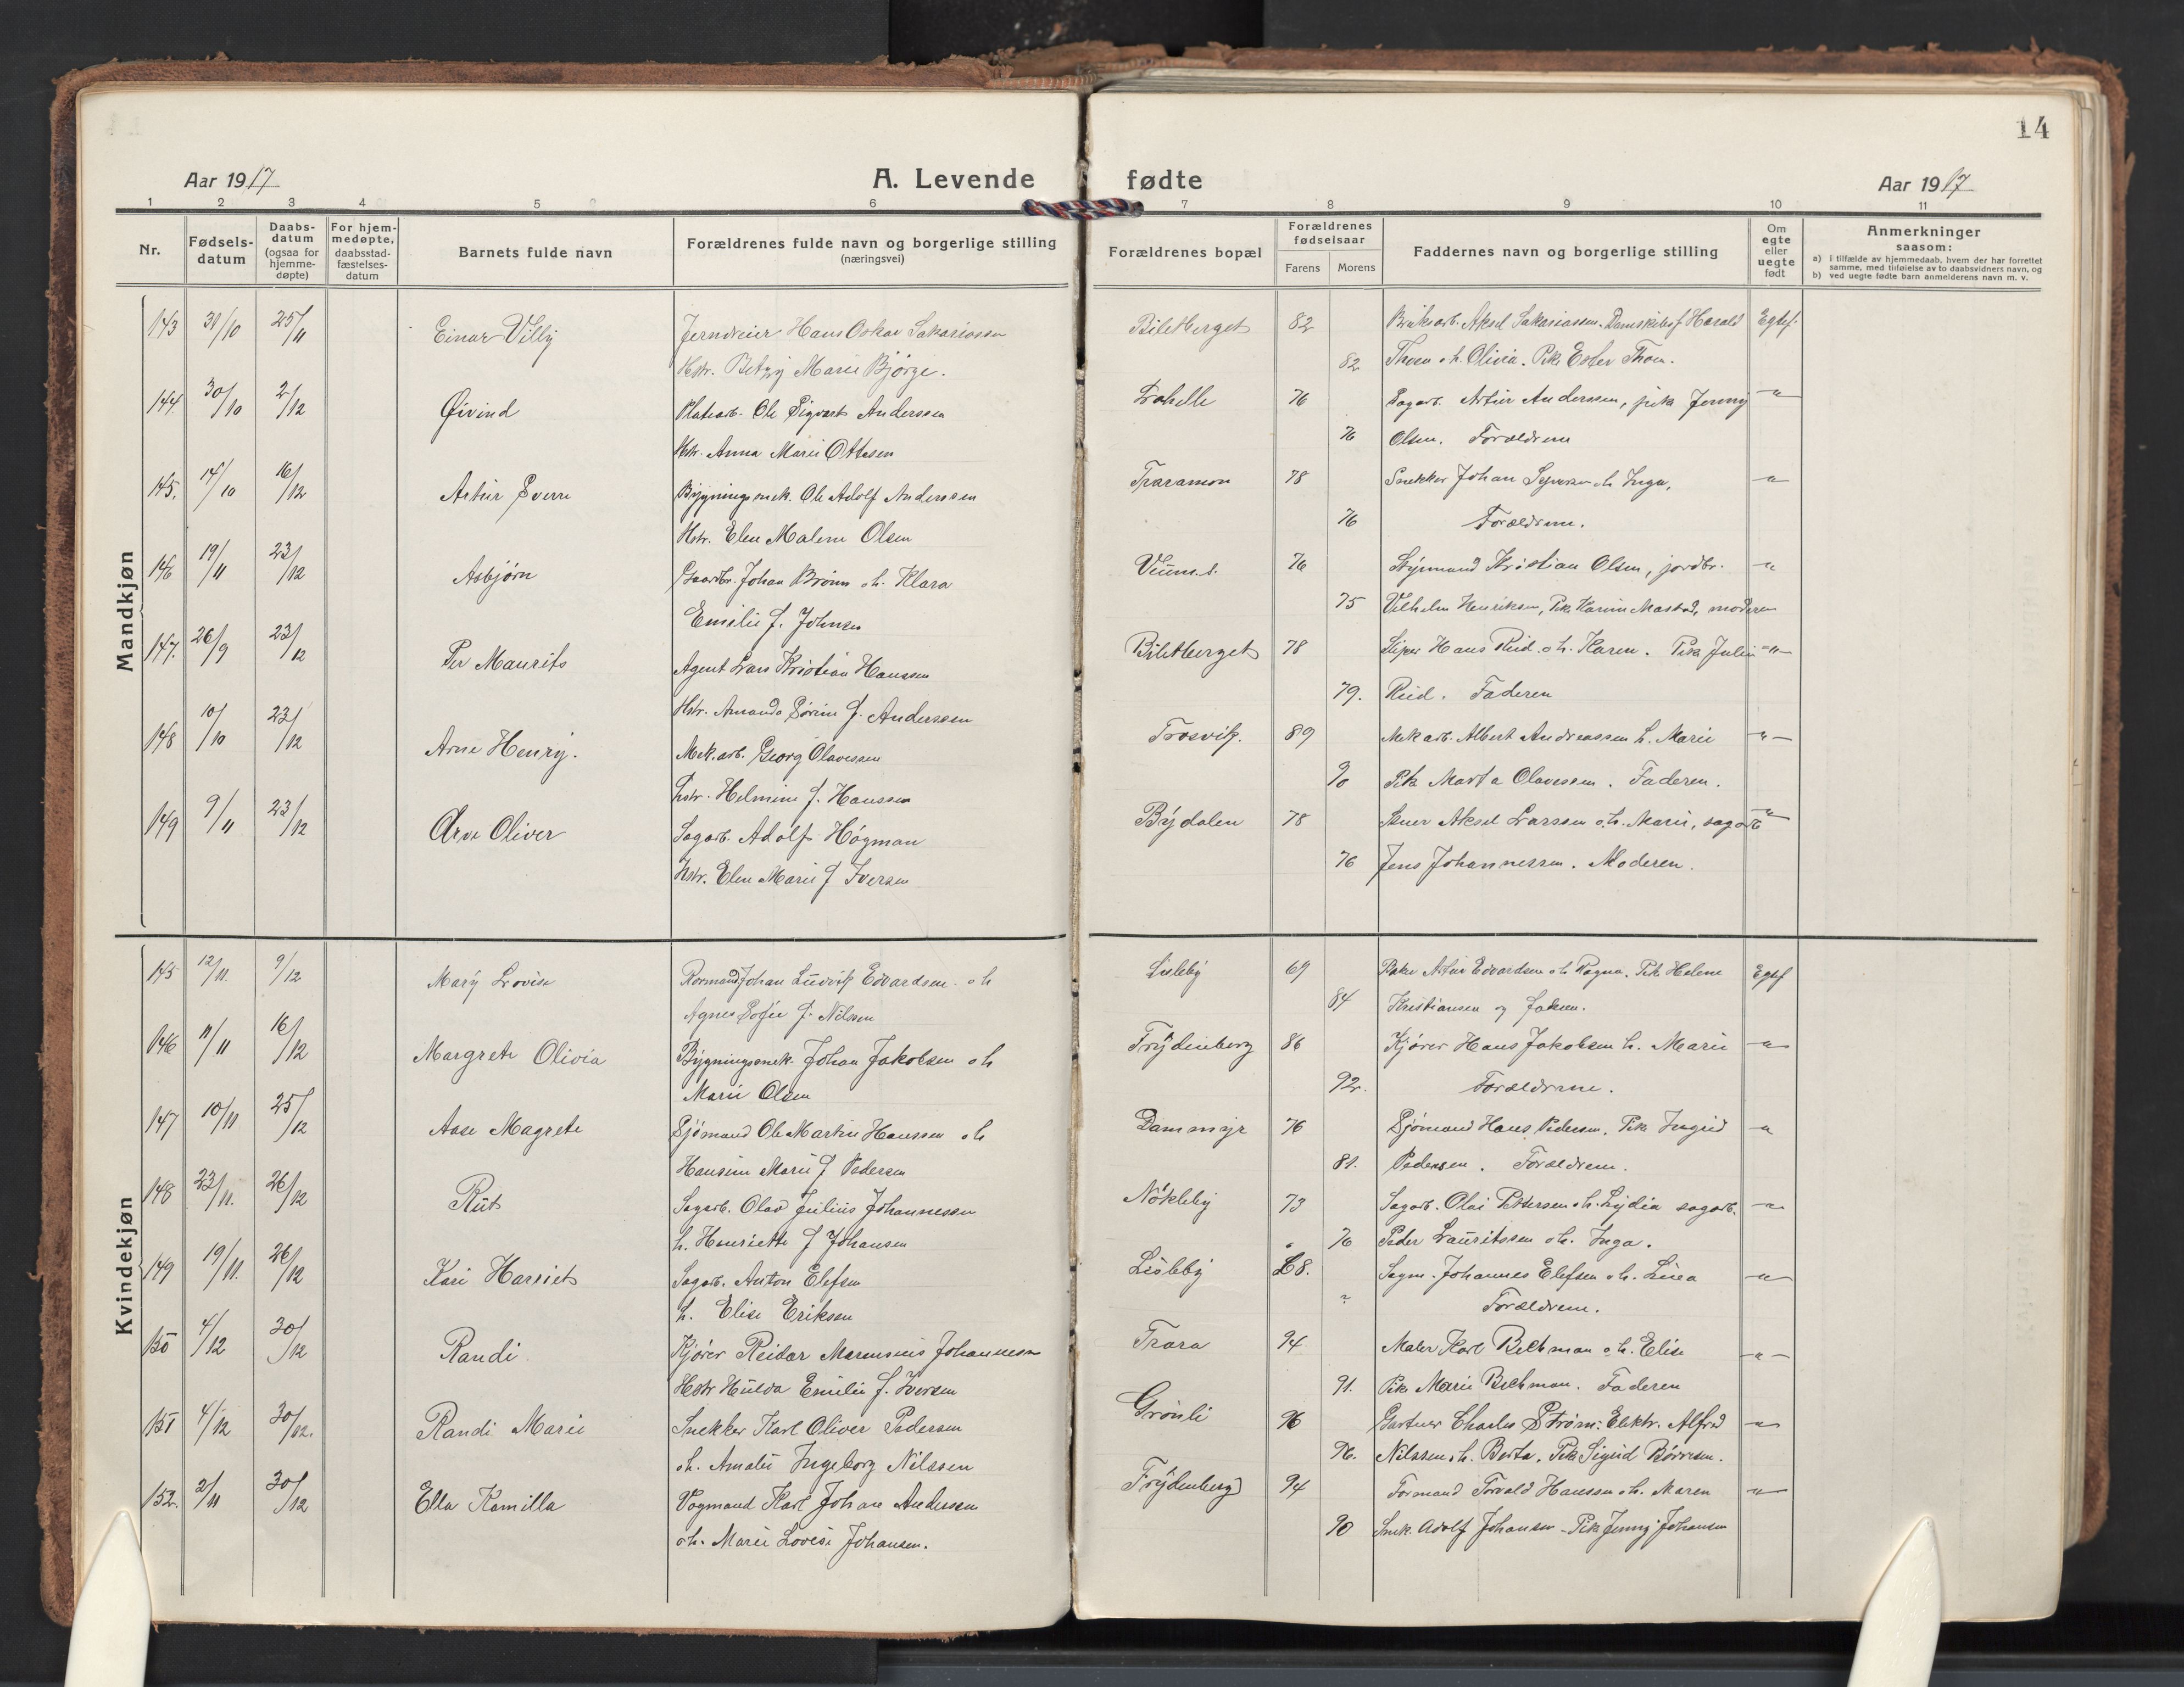 14
Aar 1917
A. Levende fødte
Aar 1917
1 2 3 4 5 6 7 8 9 10 11
Nr.
Fødsels-datum
Daabs-datum (ogsaa for hjemme-døpte)
For hjem-medøpte, daabsstad-fæstelses-datum
Barnets fulde navn
Forældrenes fulde navn og borgerlige stilling (næringsvei)
Forældrenes bopæl
Forældrenes fødselsaar
Farens Morens
Faddernes navn og borgerlige stilling
Om egte eller uegte født
Anmerkninger saasom:
a) i tilfælde av hjemmedaab, hvem der har forrettet samme, med tilføielse av to daabsvidners navn, og
b) ved uegte fødte barn anmelderens navn m. v.
Mandkjøn
143 31/10 25/11 Einar Villy Jerndreier Hans Oskar Sakariassen 82 Aksel Sakariassen. Harald Egtef.
Hstr. Betzy Marie Bjørge. 82 Thoen o h. Olivia. Pike Ester Thoen.
144 30/10 2/12 Øivind Platearb. Ole Sigvart Anderssen 76 Sagarb. Artur Anderssen, pike Jenny -"-
Hstr. Anna Marie Ottesen 76 Olsen. Forældrene
145. 14/10 16/12 Artur Sverre Bygningssnek. Ole Adolf Anderssen Traramoen 78 Snekker Johan o h Inga, -"-
Hstr. Elen Malene Olsen 76 Forældrene.
146 19/11 23/12 Asbjørn Gaardbr. Johan Brønn o h. Klara Veum. s. 76 Styrmand Kristian Olsen, jordbr. -"-
Emilie f. Johnsen 75 Vilhelm Henriksen, Pike Karine Mastad, moderen
147. 26/9 23/12 Per Maurits Agent Lars Kristian Hanssen 78 Hans Riid o h. Karen. Pike Julie -"-
Hstr. Amanda Sørine f. Anderssen 79. Riid. Faderen
148 10/10 23/12 Arne Henry. Mek.arb. Georg Olavessen Trosvik. 89 Mek arb. Albert Andreassen h. Marie -"-
Hstr. Helmine f. Hanssen 90 Pike Marta Olavessen. Faderen.
149 9/11 23/12 Arve Oliver Sagarb. Adolf Høgman Bydalen 78 Aksel Larssen o h. Marie, sagarb -"-
Hstr. Elen Marie f Iversen 76 Jens Johannessen. Moderen.
Kvindekjøn
145 12/11. 9/12 Mary Lovise Formand Johan Ludvik Edvardsen o h Lisleby 69 Artur Edvardsen o h Ragna. Pike Helene Egtef
Agnes Sofie f. Nilssen 84 Kristiansen og
146 11/11 16/12 Margrete Olivia Bygningssnek. Johan Jakobsen o h Frydenberg 86 Kjører Hans Jakobsen h. Marie -"-
Marie Olsen 92. Forældrene.
147 10/11 25/12 Aase Magrete Sjømand Ole Martin Hanssen o h Dammyr 76 Sjømand Hans Pedersen. Pike Ingrid -"-
Hansine Marie f Pedersen 81. Pedersen. Forældrene.
148 23/11. 26/12 Rut Sagarb. Olav Julius Johannessen Nøkleby 73 Sagarb. Olai Pettersen o h. Lydia sagarb. -"-
h. Henriette f Johansen 76 Peder Lauritssen o h. Inga.
149 19/11. 26/12 Kari Harriet Sagarb. Anton Elefsen Lisleby 68. Sagm. Johannes Elefsen o h. Linea -"-
h. Elise Eriksen ? Forældrene.
150 4/12 30/12 Randi Kjører Reidar Marensius Johannesen Trara 94 Maler Karl Bechman o h. Elise -"-
Hstr Hulda Emilie f. Iversen 91. Pike Marie Bechman. Faderen
151 4/12 30/12. Randi Marie Snekker Karl Oliver Pedersen Grønli 96 Gartner Charles Strøm. Elektr. Alfred -"-
o h. Amalie Ingeborg Nilssen 96. Nilssen o h. Berta. Pike Sigrid Børresen.
152. 2/11 30/12 Ella Kamilla Vogmand Karl Johan Andersen Frydenberg 94 Formand Torvald Hanssen o h. Maren -"-
o h. Marie Lovise Johansen. 90 Snek. Adolf Johansen - Pike Jenny Johansen